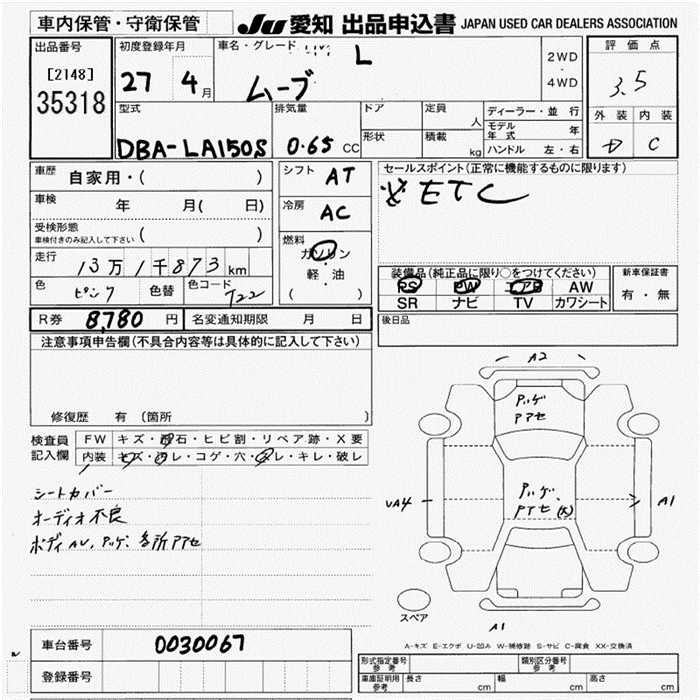 車内保管・守衛保管 Ju 愛知 出品申込書 JAPAN USED CAR DEALERS ASSOCIATION
出品番号 初度登録年月 車名・グレード L 2WD ・ 4WD 評価点
[2148] 35318 27 4月 ムーブ 3.5
型式 排気量 ドア 定員 人 ディーラー・並行 外装 内装
モデル年式 年
DBA-LA150S 0.65 CC 形状 積載 kg ハンドル 左・右 D C
車歴 自家用・( ) シフト AT セールスポイント(正常に機能するものに限ります)
車検 年 月( 日) 冷房 AC ETC
受検形態 車検付きのみ記入して下さい ( )
燃料 ガソリン 軽・油 ( )
走行 13万1千873km
色 ピンク 色替 色コード T22
装備品(純正品に限り○をつけてください) 新車保証書
PS PW エアB AW 有・無
SR ナビ TV カワシート
R券 8,780円 名変通知期限 月 日 後日品
注意事項申告欄(不具合内容等は具体的に記入して下さい)
修復歴 有 (箇所 )
検査員記入欄 FW キズ・飛石・ヒビ割・リペア跡・X要
内装 キズ・汚レ・コゲ・穴・スレ・キレ・破レ
シートカバー
オーディオ不良
ボディAU、アッゲ、各所アアセ
A2
アッゲ
アアセ
アッゲ、
アアセ(大)
UA4 A1
スペア A1
A-キズ E-エクボ U-凹み W-補修跡 S-サビ C-腐食 XX-交換済
車台番号 0030067
登録番号
形式指定番号 参考 類別区分番号 参考
車庫証明用 参考 長さ cm 幅 cm 高さ cm